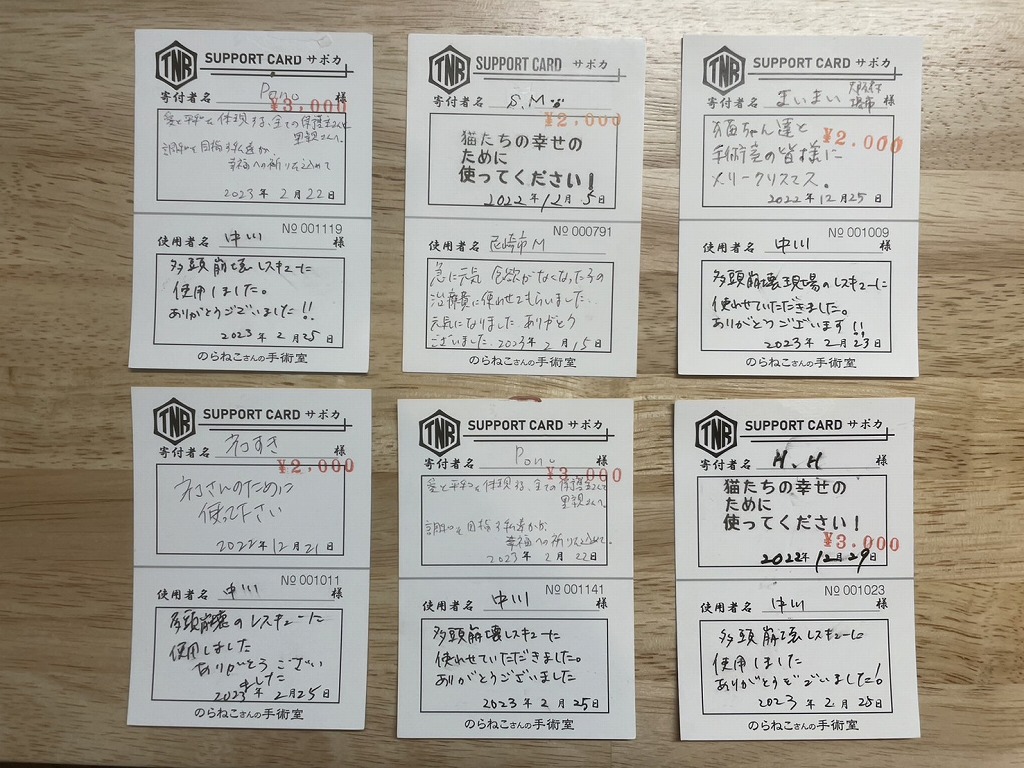 TNR SUPPORT CARD サポカ
寄付者名 Pono 様
¥3,000
愛と平和を体現する、全ての保護主さんと
里親さんへ。
調和を目指す私達が、
幸福への祈りを込めて
2023年 2月22日
No 001119
使用者名 中川 様
多頭崩壊レスキューに
使用しました。
ありがとうございました!!
2023年 2月25日
のらねこさんの手術室
TNR SUPPORT CARD サポカ
寄付者名 S.M 様
¥2,000
猫たちの幸せの
ために
使ってください!
2022年 12月 5日
No 000791
使用者名 尼崎市M 様
急に元気 食欲がなくなったコの
治療費に使わせてもらいました.
元気になりました ありがとう
ございました. 2023年 2月15日
のらねこさんの手術室
TNR SUPPORT CARD サポカ
寄付者名 まいまい 様
¥2,000
猫ちゃん達と
手術室の皆様に
メリークリスマス。
2022年 12月25日
No 001009
使用者名 中川 様
多頭崩壊現場のレスキューに
使わせていただきました。
ありがとうございます!!
2023年 2月23日
のらねこさんの手術室
TNR SUPPORT CARD サポカ
寄付者名 ネコすき 様
¥2,000
ネコさんのために
使って下さい
2022年12月21日
No 001011
使用者名 中川 様
多頭崩壊のレスキューに
使用しました
ありがとうござい
ました
2023年 2月25日
のらねこさんの手術室
TNR SUPPORT CARD サポカ
寄付者名 Pono 様
¥3,000
愛と平和を体現する、全ての保護主さんと
里親さんへ。
調和を目指す私達が、
幸福への祈りを込めて。
2023年 2月22日
No 001141
使用者名 中川 様
多頭崩壊レスキューに
使わせていただきました。
ありがとうございました
2023年 2月25日
のらねこさんの手術室
TNR SUPPORT CARD サポカ
寄付者名 H.H 様
猫たちの幸せの
ために
使ってください!
¥3,000
2022年 12月29日
No 001023
使用者名 中川 様
多頭崩壊レスキューに
使用しました
ありがとうございました!
2023年 2月25日
のらねこさんの手術室